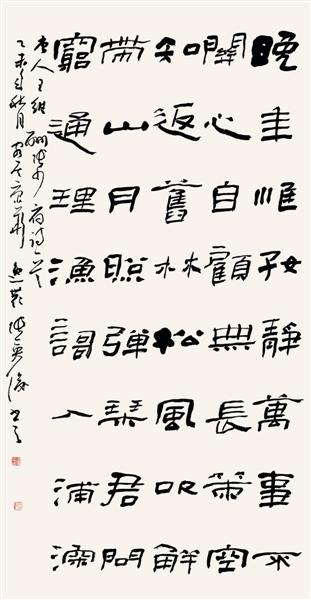 晚年惟好靜萬事不
關心自顧無長策空
知返舊林松風吹解
帶山月照彈琴君問
窮通理漁謌入浦深
唐人王維酬張少府詩一首
乙未年秋月